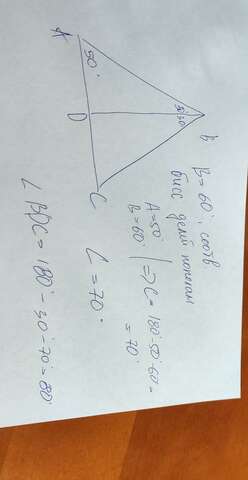 A
50°
30° 30°
D
B
C
B = 60°, соотв.
бисс делит пополам
A = 50°
B = 60°
=> C = 180° - 50° - 60° =
= 70°
∠ C = 70°
∠ BDC = 180° - 30° - 70° = 80°